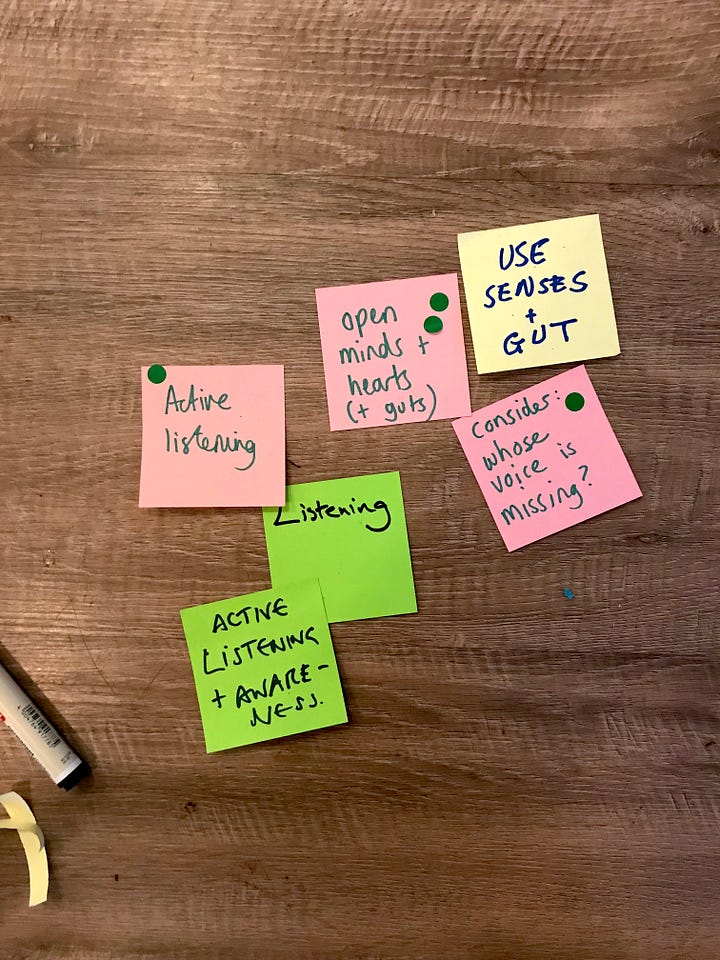 USE
SENSES
+
GUT
open
minds +
hearts
(+ guts)
Active
listening
consider:
whose
voice is
missing?
Listening
ACTIVE
LISTENING
+ AWARE-
NESS.